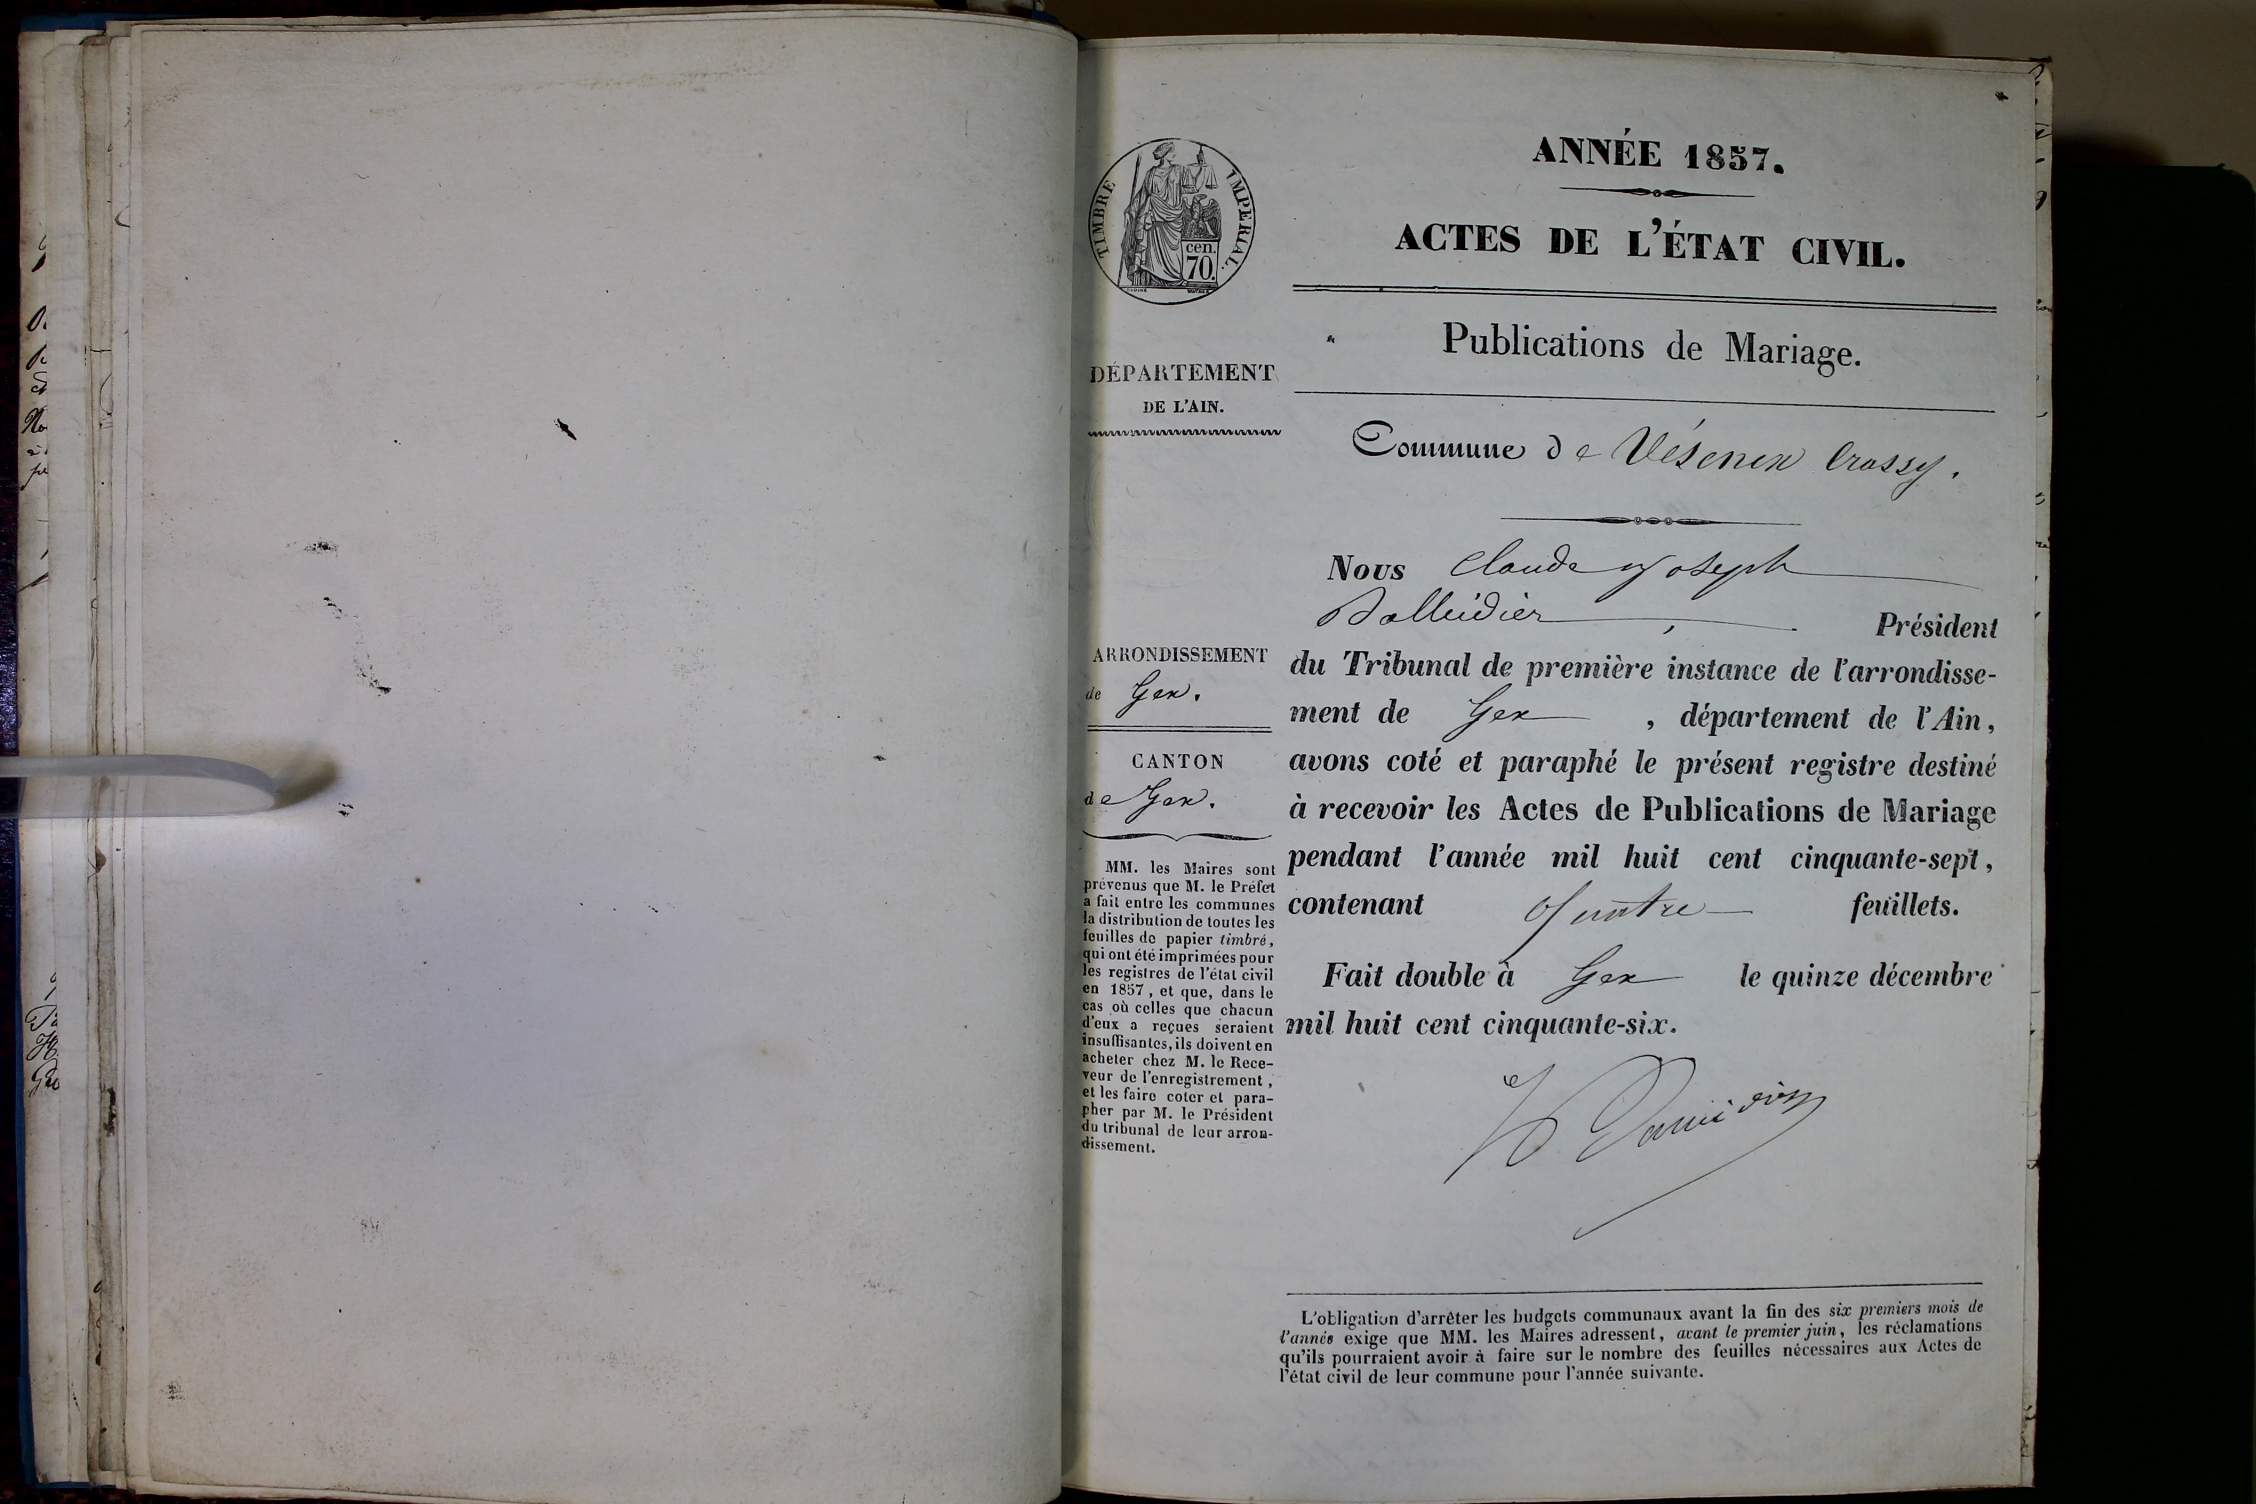 ANNÉE 1857.
ACTES DE L'ÉTAT CIVIL.
Publications de Mariage.
TIMBRE IMPERIAL.
cen.
70.
DÉPARTEMENT
DE L'AIN.
ARRONDISSEMENT
de Gex.
CANTON
de Gex.
MM. les Maires sont
prévenus que M. le Préfet
a fait entre les communes
la distribution de toutes les
feuilles de papier timbré,
qui ont été imprimées pour
les registres de l'état civil
en 1857, et que, dans le
cas où celles que chacun
d'eux a reçues seraient
insuffisantes, ils doivent en
acheter chez M. le Rece-
veur de l'enregistrement,
et les faire coter et para-
pher par M. le Président
du tribunal de leur arron-
dissement.
Commune de Vésenex Crassy.
Nous Claude Joseph
Président
du Tribunal de première instance de l'arrondisse-
ment de Gex, département de l'Ain,
avons coté et paraphé le présent registre destiné
à recevoir les Actes de Publications de Mariage
pendant l'année mil huit cent cinquante-sept,
contenant quatre feuillets.
Fait double à Gex le quinze décembre
mil huit cent cinquante-six.
L'obligation d'arrêter les budgets communaux avant la fin des six premiers mois de
l'année exige que MM. les Maires adressent, avant le premier juin, les réclamations
qu'ils pourraient avoir à faire sur le nombre des feuilles nécessaires aux Actes de
l'état civil de leur commune pour l'année suivante.